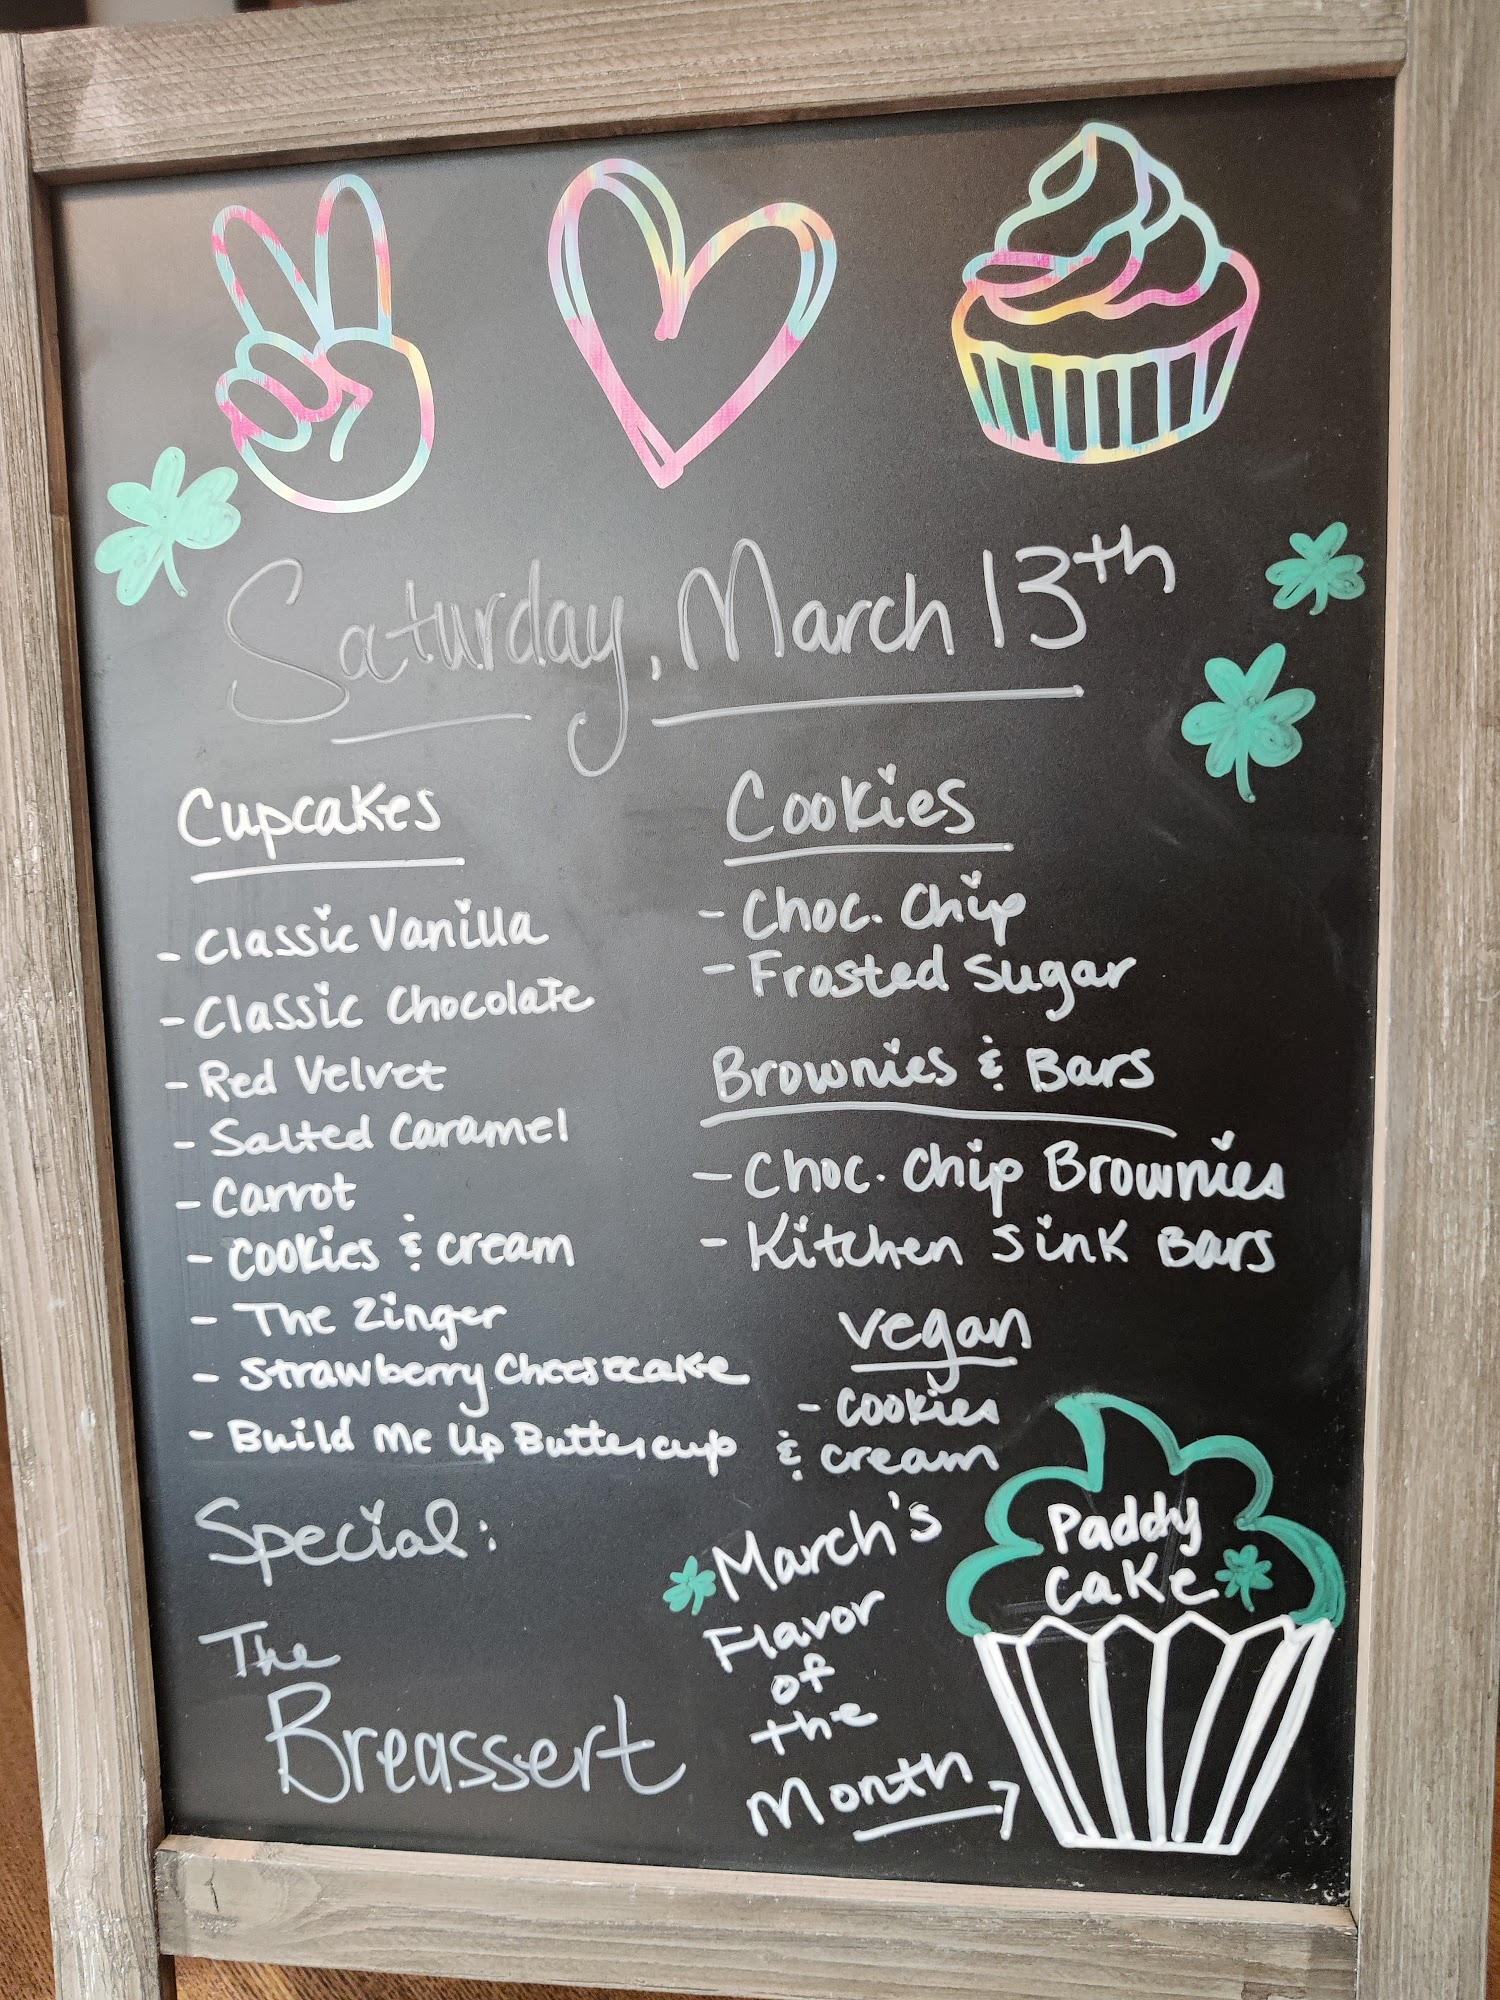 Saturday, March 13th
Cupcakes
- Classic Vanilla
- Classic Chocolate
- Red Velvet
- Salted Caramel
- Carrot
- Cookies & Cream
- The Zinger
- Strawberry Cheesecake
- Build Me Up Buttercup
Special:
The
Breassert
Cookies
- Choc. Chip
- Frosted Sugar
Brownies & Bars
- Choc. Chip Brownies
- Kitchen Sink Bars
Vegan
- Cookies
& Cream
March's
Flavor
of
the
Month
Paddy
Cake